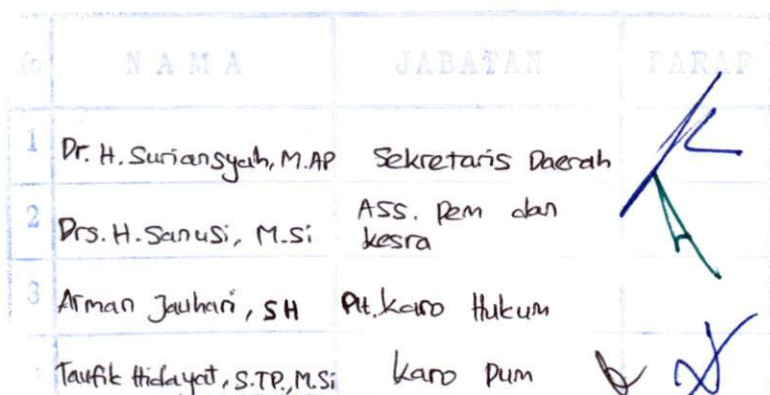 No. NAMA JABATAN PARAF
1 Dr. H. Suriansyah, M.AP Sekretaris Daerah
2 Drs. H. Sanusi, M.Si Ass. Pem dan
Kesra
3 Arman Jauhari, SH Plt. Karo Hukum
Taufik Hidayat, S.TP., M.Si Karo Pum